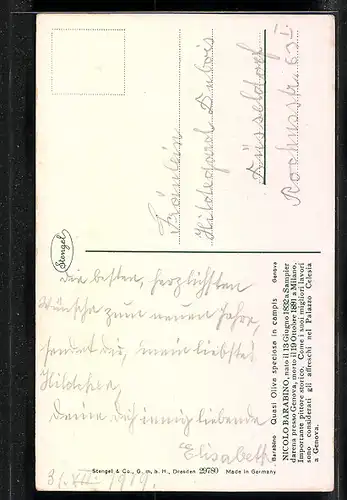 Fräulein
Hildegard Dubois
Düsseldorf
Rochusstr. 63 I
Stengel
Die besten, herzlichsten
Wünsche zum neuen Jahre,
sendet dir, mein liebstes
Hildchen,
Deine Dich innig liebende
Elisabeth
31. XII. 1919.
Barabino Quasi Oliva speciosa in campis Genova
NICOLO BARABINO, nato il 13 Giugno 1832 a Sampier
darena presso Genova, morto il 19 Ottobre 1891 a Milano.
Importante pittore storico. Come i suoi migliori lavori
sono considerati gli affreschi nel Palazzo Celesia
a Genova.
Stengel & Co., G. m. b. H., Dresden 29780 Made in Germany